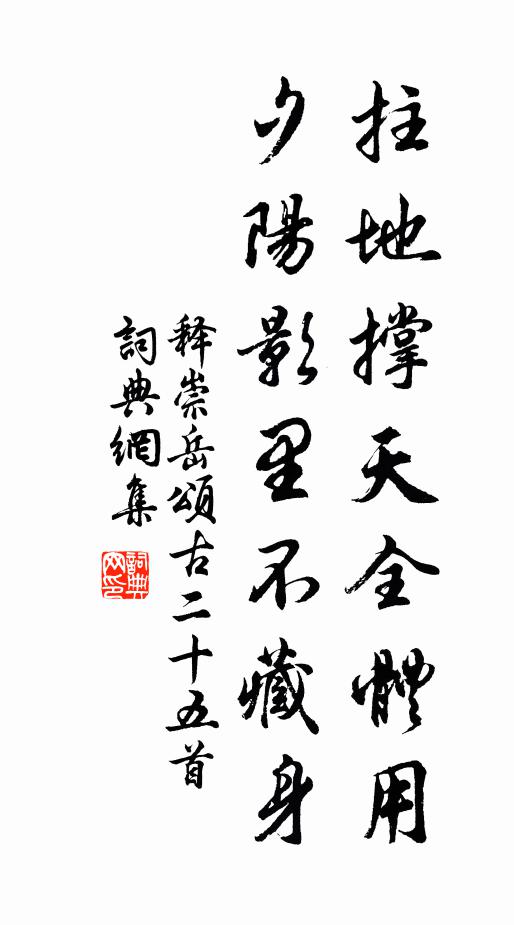 拄地撐天全體用
夕陽影里不藏身
释崇岳頌古二十五首
詞典網集
詞典网印